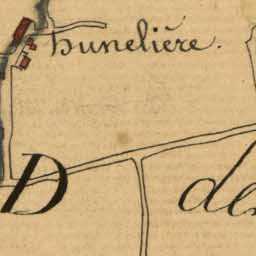 huneliére.
D de